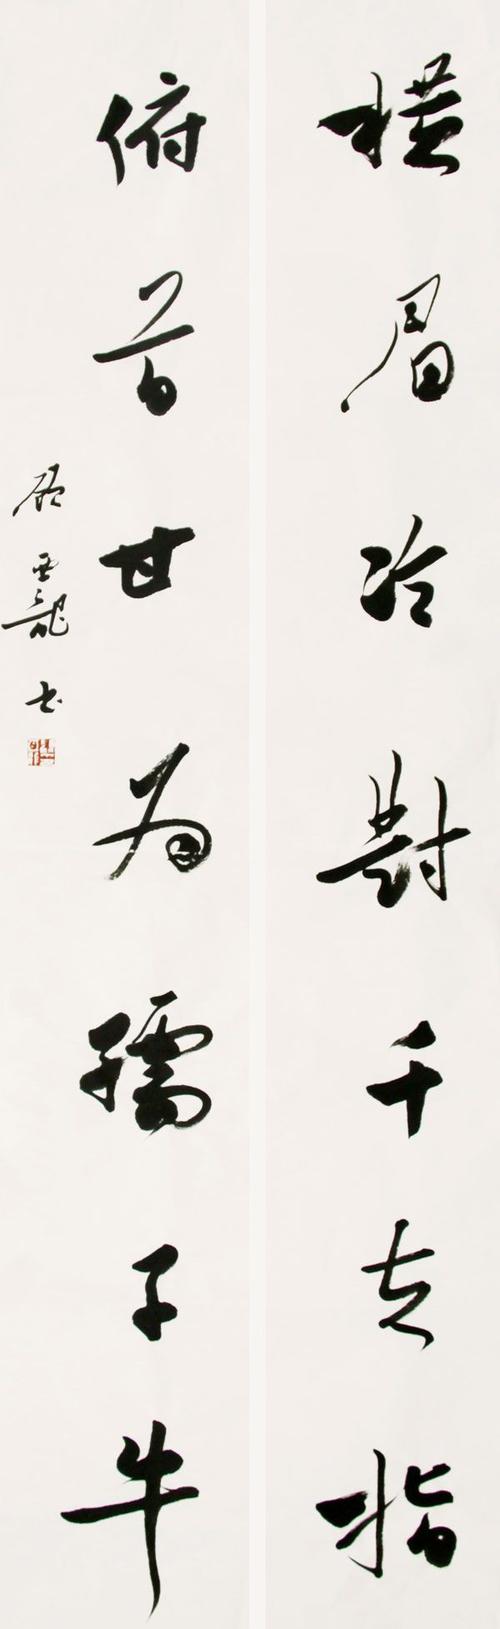 横眉冷對千夫指
俯首甘为孺子牛
云龍书